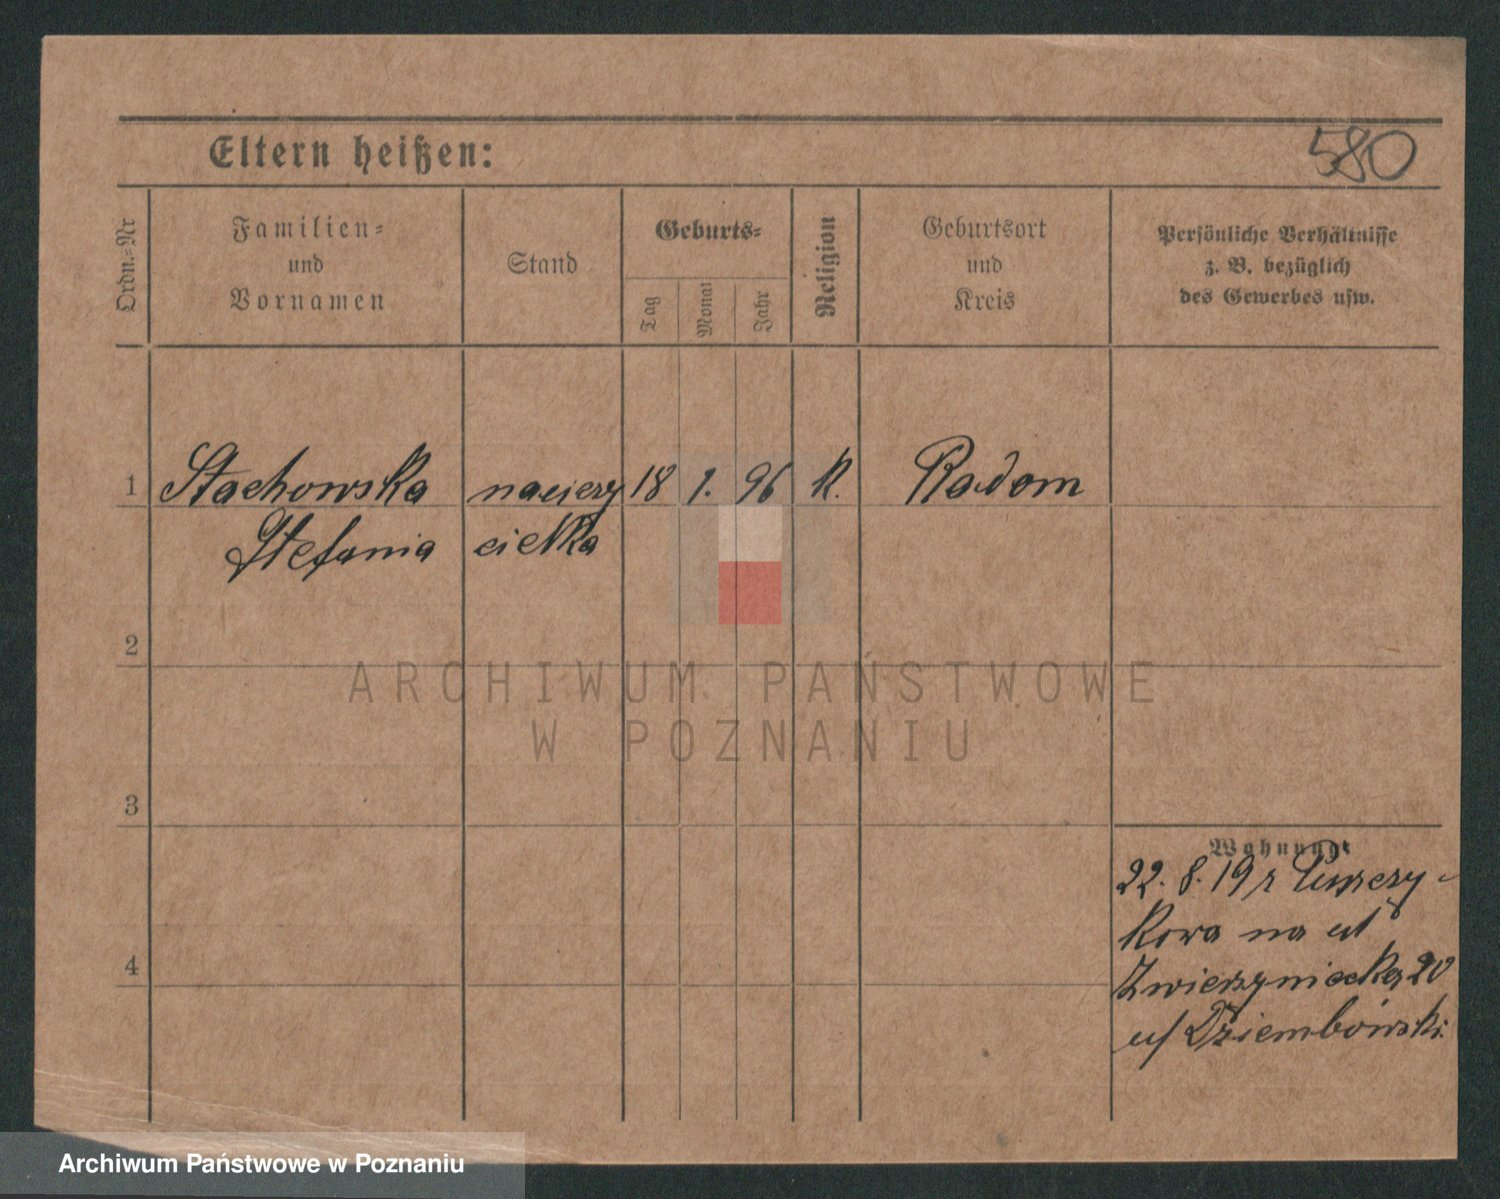 Eltern heißen:
580
Ordn.=Nr
Familien=
und
Vornamen
Stand
Geburts=
Tag
Monat
Jahr
Religion
Geburtsort
und
Kreis
Persönliche Verhältnisse
z. B. bezüglich
des Gewerbes usw.
1 Stachowska nauczy 18 1. 96 K. Radom
Stefania cielka
2
3
4
Wohnung:
22. 8. 19 r
kowa na ul
Zwierzyniecką 20
u/ Dziembówski.
ARCHIWUM PAŃSTWOWE
W POZNANIU
Archiwum Państwowe w Poznaniu